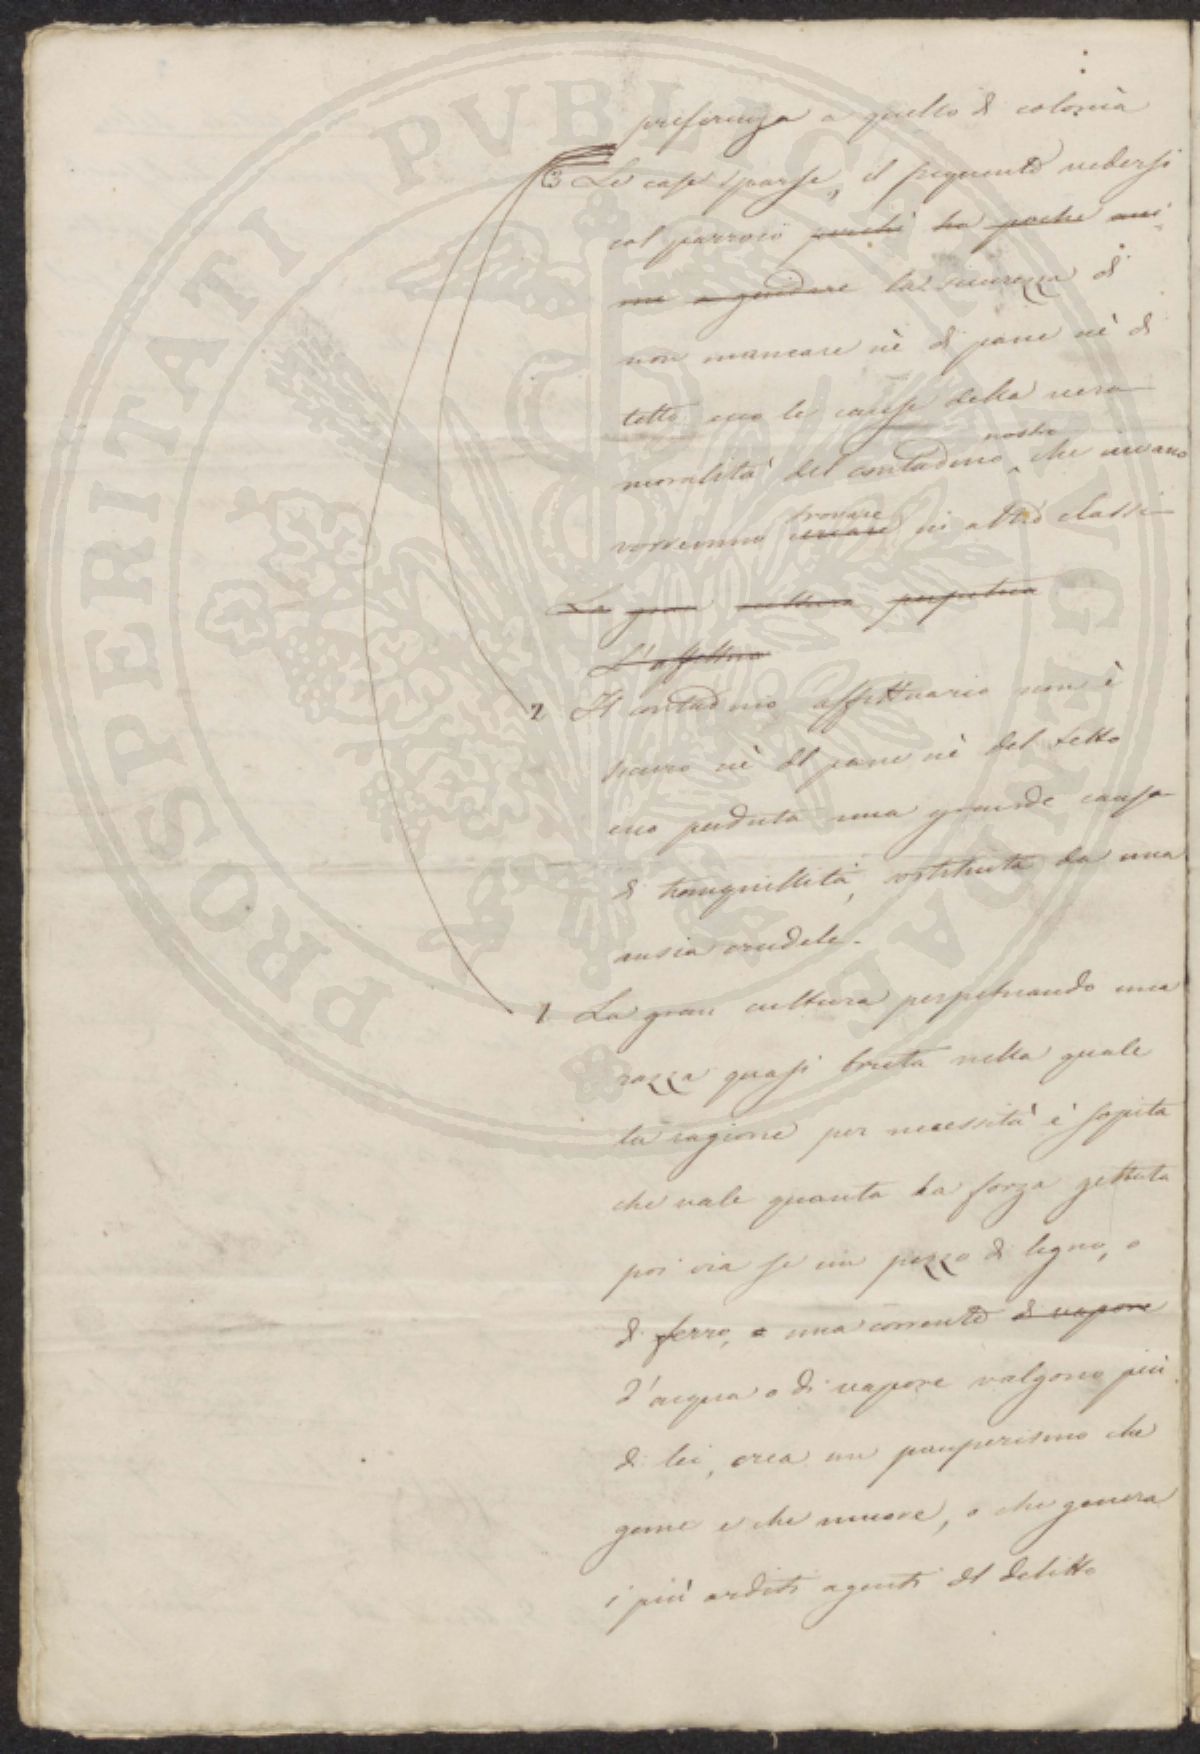 preferenza a quello di colonìa
3 Le case sparse, il frequente vedersi
col parroco perchè ha poche ani
me a guidare la sicurezza di
non mancare nè di pane nè di
tetto ecco le cause della vera
moralità del contadino nostro che invano
vorremmo cercare trovare in altre classi
La gran cultura perpetua
L'affittua
2 Il contadino affittuario non è
sicuro nè del pane nè del tetto
ecco perduta una grande causa
di tranquillità, sostituita da una
ansia crudele.
1 La gran cultura perpetuando una
razza quasi bruta nella quale
la ragione per necessità è sopita
che vale quanto la forza gettata
poi via se un pezzo di legno, o
di ferro, o una corrente di vapore
d'acqua o di vapore valgono più
di lei, crea un pauperismo che
geme e che muore, o che genera
i più arditi agenti del delitto
PROSPERITATI PVBLICAE AVGENDAE